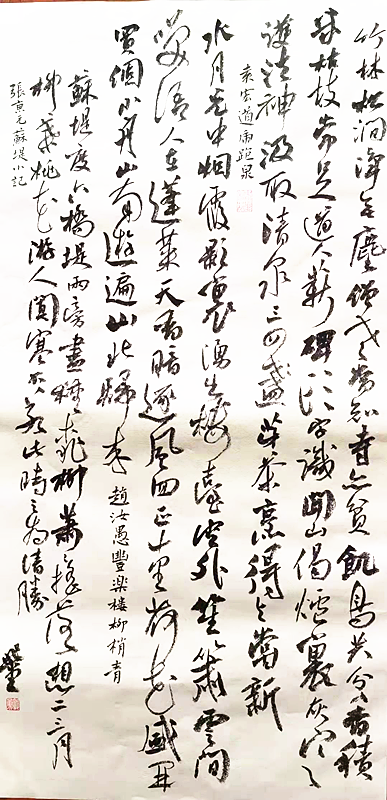 竹林松澗淨無塵僧老當知寺亦貧飢鳥共分香積
米枯枝常足道人薪碑頭字識開山偈爐裏灰寒
護法神汲取清泉三四盞芽茶烹得與嘗新
袁宏道虎跑泉
水月光中烟霞影裏湧出樓臺空外笙簫雲間
笑語人在蓬萊天香暗逐風回正十里荷花盛開
買個小舟山南遊遍山北歸來
趙汝愚豐樂樓柳梢青
蘇堤度六橋堤兩旁盡種桃柳蕭蕭搖落想二三月
柳葉桃花游人闐塞不若此時之為清勝
張京元蘇堤小記